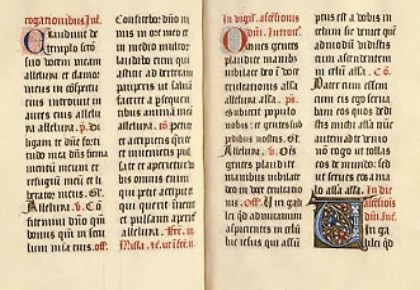 rogationibus Int.
Exaudiuit de
templo scto
suo vocem meam
alleluya et clamor
meus in cospectu
eius introiuit in
aures eius allelu
ya alleluya. p. Di
ligam te dne forti
tudo mea dns firma
mentu meum et
refugiu meu et li
berator meus. Gl.
Alleluya. v. Co
fitemini dno qm
bonus qm in secu
lum mia eius. off.
Confitebor dno ni
mis in ore meo et
in medio multor
laudabo eum qui
astitit ad dexteram
pauperis ut salua
faceret a psequen
tibus anima mea
alleluya. co. petite
et accipietis qrite
et inuenietis pul
sate et aperietur vo
bis omnis enim
qui petit accipit
qui querit inuenit
et pulsanti aperiet
alleluya. Fer. iii.
Missa. fer. ii.
In vigil. ascesionis
dni. Introit.
Omnes gentes
plaudite manibs
iubilate deo i voce
exultationis alla
alla alla. ps.
Subiecit populos
nobis et gentes sub
pedibus nostris. Gl.
Alleluya. v. Ois
gentes plaudite
manibus iubilate
deo in voce exultatio
nis. Off. Viri gali
lei qd admiramini
aspicientes in celu
hic iesus qui assup
ptus est a vobis in
celum sic veniet que
admodu vidistis
eum ascendentem
in celu alla. Co.
Pater cum essem
cum eis ego serua
bam eos quos dedi
sti michi alla nuc
autem ad te venio
no rogo ut tollas
eos de mundo: sed
ut serues eos a ma
lo alla alla. In die
ascesiois
dni. Int.
Viri ga
lilei qd